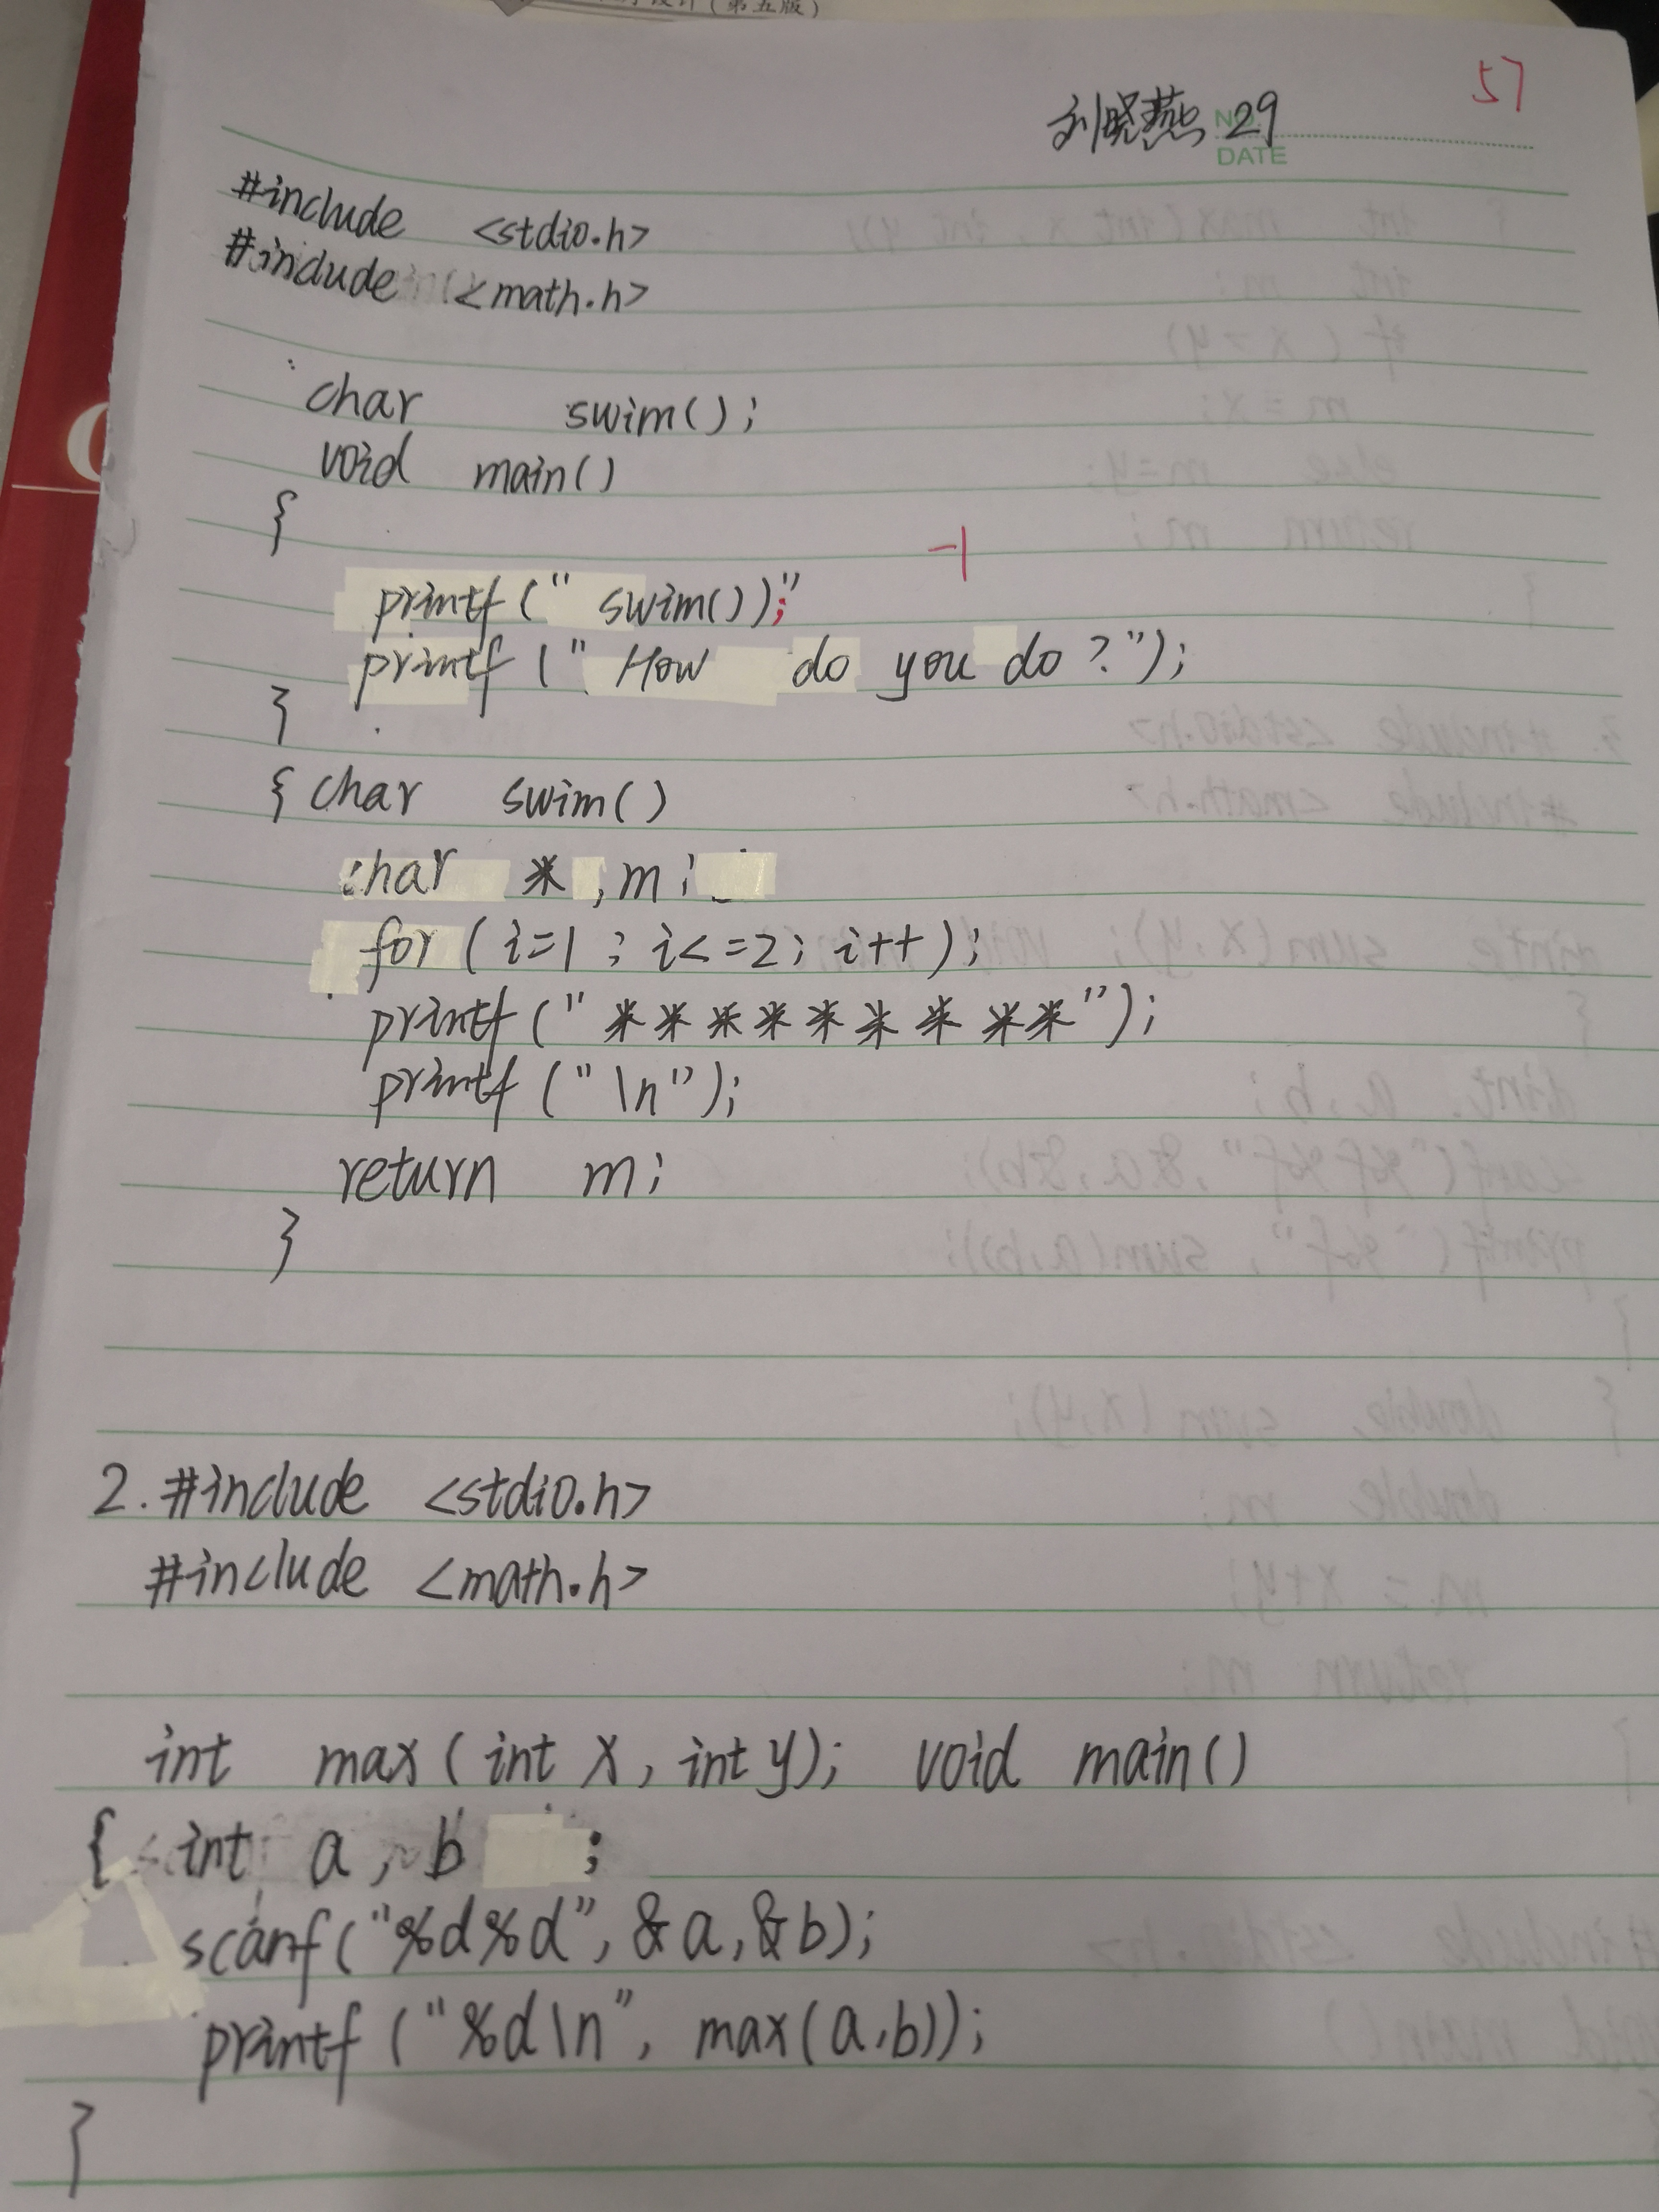 设计(第五版)
57
刘晓燕 29
NO.
DATE
#include <stdio.h>
#include <math.h>
char swim();
void main()
{
-1
printf(" swim());"
printf (" How do you do?");
}
{ char swim()
char * ,m;
for (i=1 ; i<=2; i++);
printf(" * * * * * * * * * ");
printf ("\n");
return m;
}
2. #include <stdio.h>
#include <math.h>
int max(int x, int y); void main()
{ int a, b ;
scanf("%d%d", &a,&b);
printf ("%d\n", max(a,b));
}